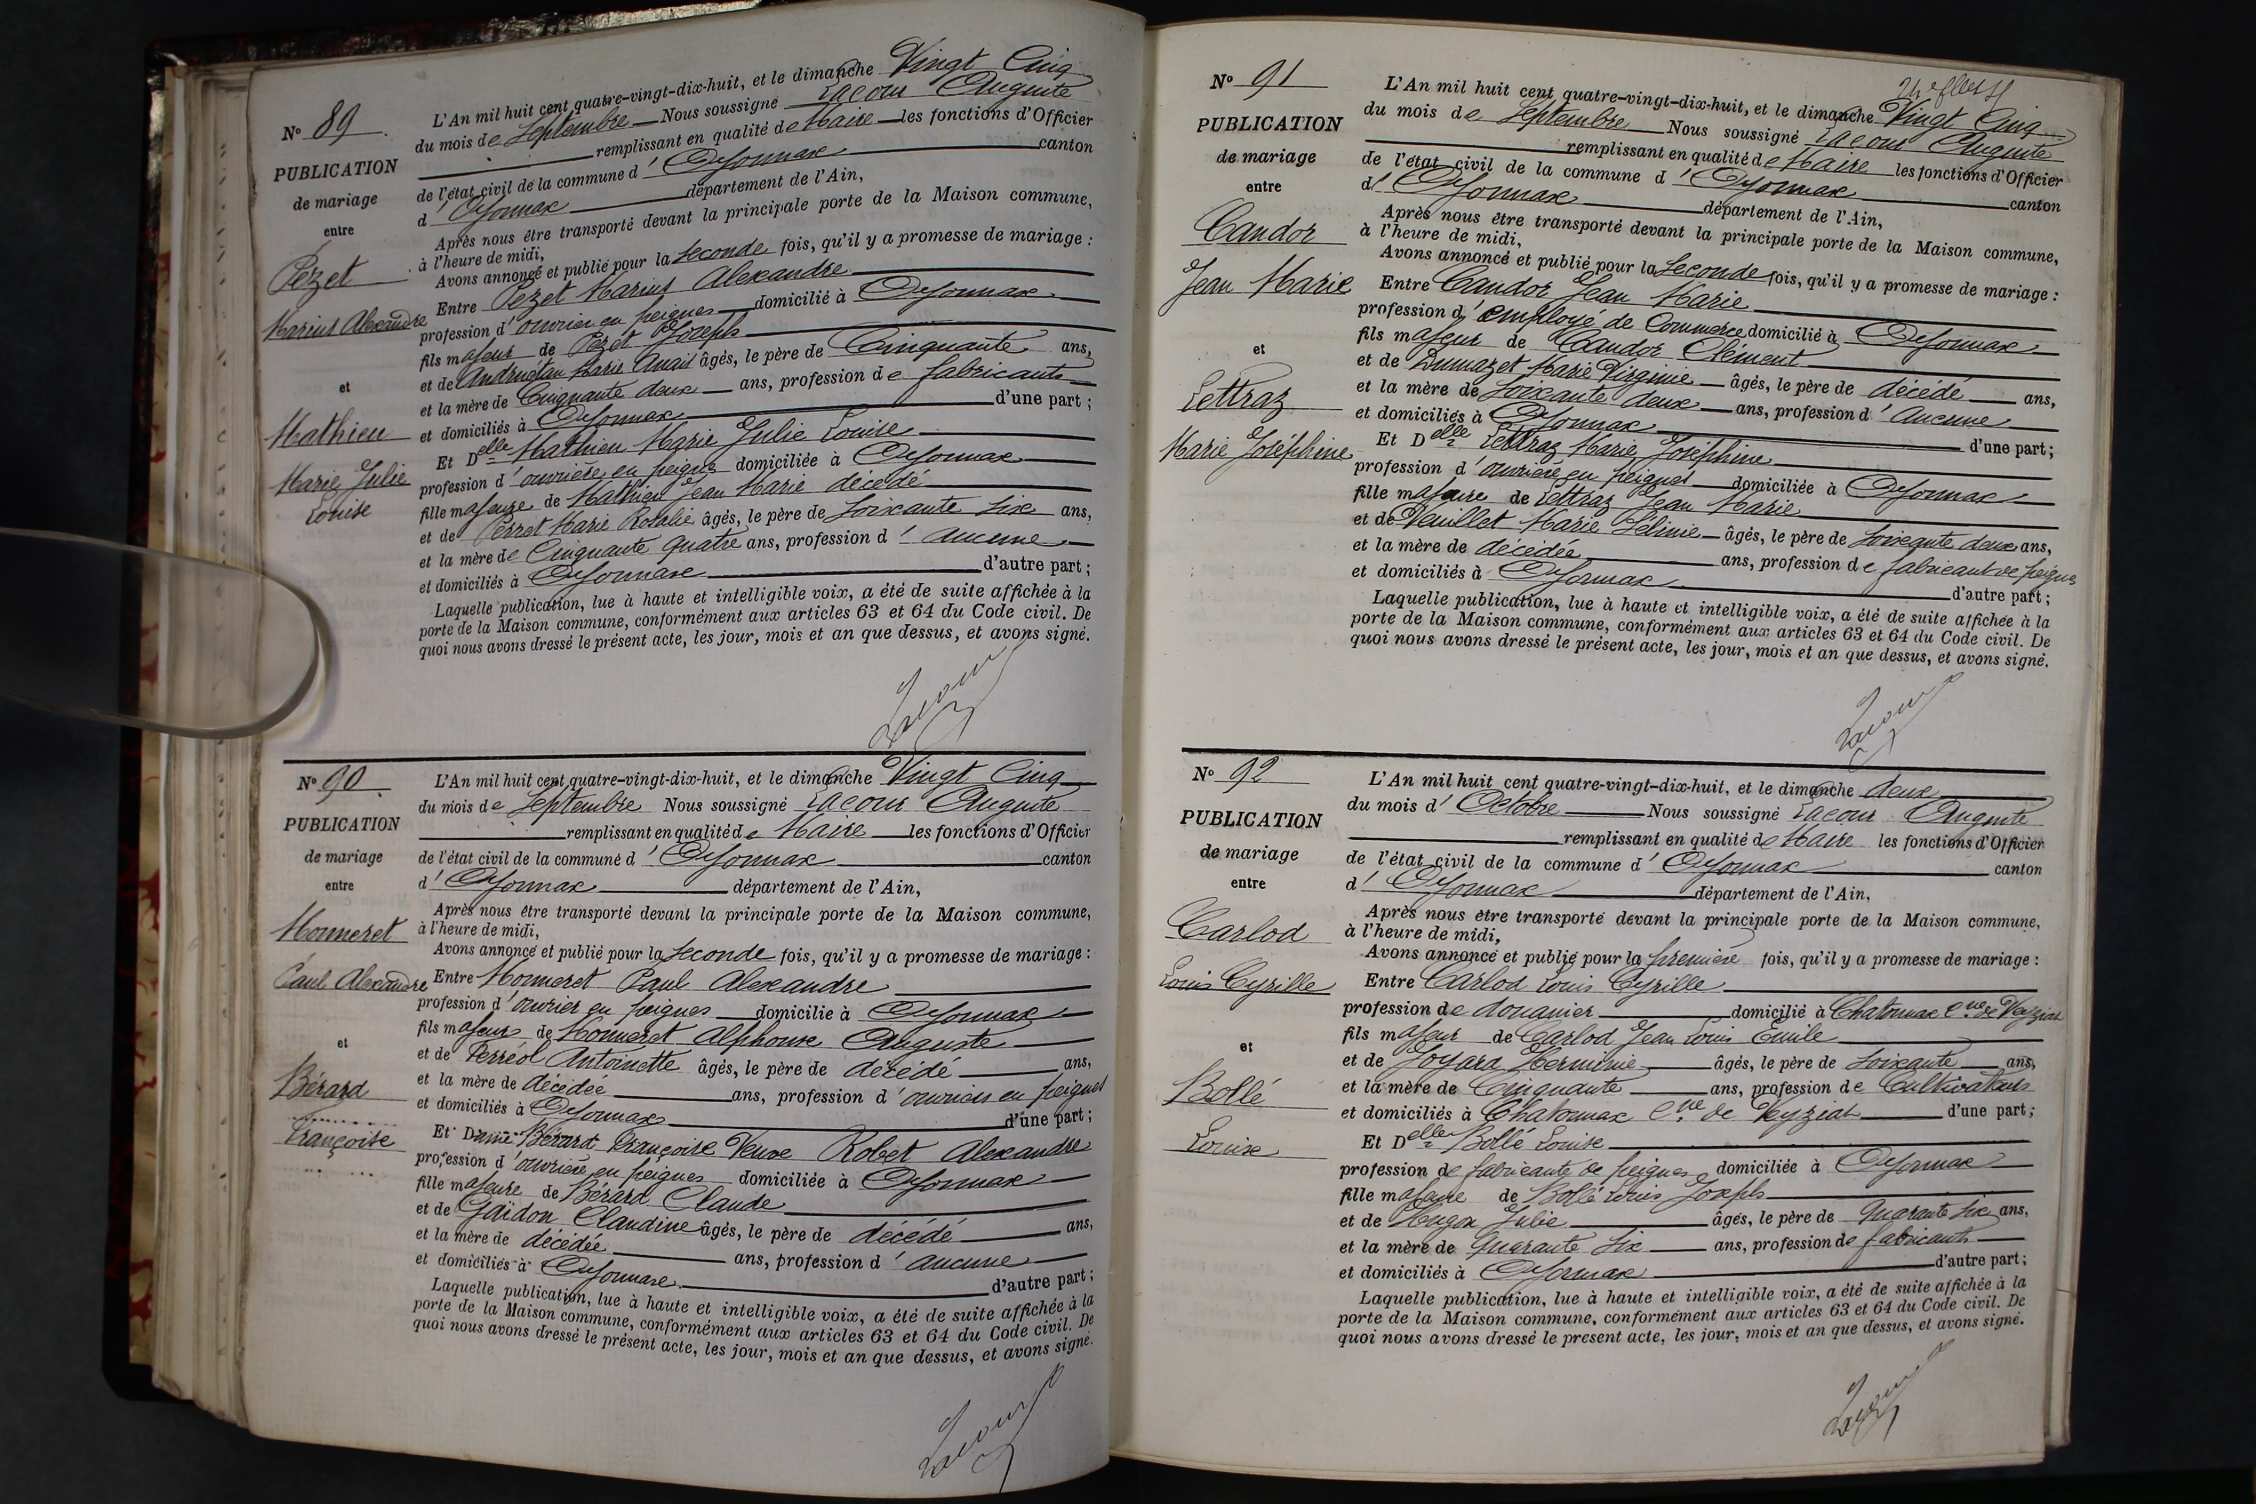 N° 89
PUBLICATION
de mariage
entre
Pézet
Marius Alexandre
et
Mathieu
Marie Julie
Louise
L'An mil huit cent quatre-vingt-dix-huit, et le dimanche Vingt Cinq
du mois de Septembre Nous soussigné Lacour Auguste
remplissant en qualité de Maire les fonctions d'Officier
de l'état civil de la commune d' Oyonnax canton
d' Oyonnax département de l'Ain,
Après nous être transporté devant la principale porte de la Maison commune,
à l'heure de midi,
Avons annoncé et publié pour la Seconde fois, qu'il y a promesse de mariage :
Entre Pézet Marius Alexandre
profession d' ouvrier en peignes domicilié à Oyonnax
fils majeur de Pézet Joseph
et de Andruétan Marie Anaïs âgés, le père de Cinquante ans,
et la mère de Cinquante deux ans, profession de fabricants
et domiciliés à Oyonnax d'une part ;
Et Delle Mathieu Marie Julie Louise
profession d' ouvrière en peignes domiciliée à Oyonnax
fille majeure de Mathieu Jean Marie décédé
et de Perret Marie Rosalie âgés, le père de Soixante Six ans,
et la mère de Cinquante quatre ans, profession d' aucune
et domiciliés à Oyonnax d'autre part ;
Laquelle publication, lue à haute et intelligible voix, a été de suite affichée à la
porte de la Maison commune, conformément aux articles 63 et 64 du Code civil. De
quoi nous avons dressé le présent acte, les jour, mois et an que dessus, et avons signé.
Lacour
N° 90
PUBLICATION
de mariage
entre
Monneret
Paul Alexandre
et
Bérard
Françoise
L'An mil huit cent quatre-vingt-dix-huit, et le dimanche Vingt Cinq
du mois de Septembre Nous soussigné Lacour Auguste
remplissant en qualité de Maire les fonctions d'Officier
de l'état civil de la commune d' Oyonnax canton
d' Oyonnax département de l'Ain,
Après nous être transporté devant la principale porte de la Maison commune,
à l'heure de midi,
Avons annoncé et publié pour la Seconde fois, qu'il y a promesse de mariage :
Entre Monneret Paul Alexandre
profession d' ouvrier en peignes domicilié à Oyonnax
fils majeur de Monneret Alphonse Auguste
et de Perréol Antoinette âgés, le père de décédé ans,
et la mère de décédée ans, profession d' ouvriers en peignes
et domiciliés à Oyonnax d'une part ;
Et Dame Bérard Françoise Veuve Robet Alexandre
profession d' ouvrière en peignes domiciliée à Oyonnax
fille majeure de Bérard Claude
et de Gaidon Claudine âgés, le père de décédé ans,
et la mère de décédée ans, profession d' aucune
et domiciliés à Oyonnax d'autre part ;
Laquelle publication, lue à haute et intelligible voix, a été de suite affichée à la
porte de la Maison commune, conformément aux articles 63 et 64 du Code civil. De
quoi nous avons dressé le présent acte, les jour, mois et an que dessus, et avons signé.
Lacour
N° 91
PUBLICATION
de mariage
entre
Candor
Jean Marie
et
Lettraz
Marie Joséphine
L'An mil huit cent quatre-vingt-dix-huit, et le dimanche Vingt Cinq
du mois de Septembre Nous soussigné Lacour Auguste
remplissant en qualité de Maire les fonctions d'Officier
de l'état civil de la commune d' Oyonnax canton
d' Oyonnax département de l'Ain,
Après nous être transporté devant la principale porte de la Maison commune,
à l'heure de midi,
Avons annoncé et publié pour la Seconde fois, qu'il y a promesse de mariage :
Entre Candor Jean Marie
profession d' employé de Commerce domicilié à Oyonnax
fils majeur de Candor Clément
et de Dumazet Marie Virginie âgés, le père de décédé ans,
et la mère de Soixante deux ans, profession d' Aucune
et domiciliés à Oyonnax d'une part ;
Et Delle Lettraz Marie Joséphine
profession d' ouvrière en peignes domiciliée à Oyonnax
fille majeure de Lettraz Jean Marie
et de Veuillet Marie Zélinie âgés, le père de Soixante deux ans,
et la mère de décédée ans, profession de fabricant de peignes
et domiciliés à Oyonnax d'autre part ;
Laquelle publication, lue à haute et intelligible voix, a été de suite affichée à la
porte de la Maison commune, conformément aux articles 63 et 64 du Code civil. De
quoi nous avons dressé le présent acte, les jour, mois et an que dessus, et avons signé.
Lacour
N° 92
PUBLICATION
de mariage
entre
Carlod
Louis Cyrille
et
Bollé
Louise
L'An mil huit cent quatre-vingt-dix-huit, et le dimanche deux
du mois d' Octobre Nous soussigné Lacour Auguste
remplissant en qualité de Maire les fonctions d'Officier
de l'état civil de la commune d' Oyonnax canton
d' Oyonnax département de l'Ain,
Après nous être transporté devant la principale porte de la Maison commune,
à l'heure de midi,
Avons annoncé et publié pour la première fois, qu'il y a promesse de mariage :
Entre Carlod Louis Cyrille
profession de douanier domicilié à Chatonnax Cne de Veyziat
fils majeur de Carlod Jean Louis Emile
et de Joyard Herminie âgés, le père de Soixante ans,
et la mère de Cinquante ans, profession de Cultivateurs
et domiciliés à Chatonnax Cne de Veyziat d'une part ;
Et Delle Bollé Louise
profession de fabricante de peignes domiciliée à Oyonnax
fille majeure de Bollé Louis Joseph
et de Hugon Julie âgés, le père de Quarante Six ans,
et la mère de Quarante Six ans, profession de fabricants
et domiciliés à Oyonnax d'autre part ;
Laquelle publication, lue à haute et intelligible voix, a été de suite affichée à la
porte de la Maison commune, conformément aux articles 63 et 64 du Code civil. De
quoi nous avons dressé le présent acte, les jour, mois et an que dessus, et avons signé.
Lacour